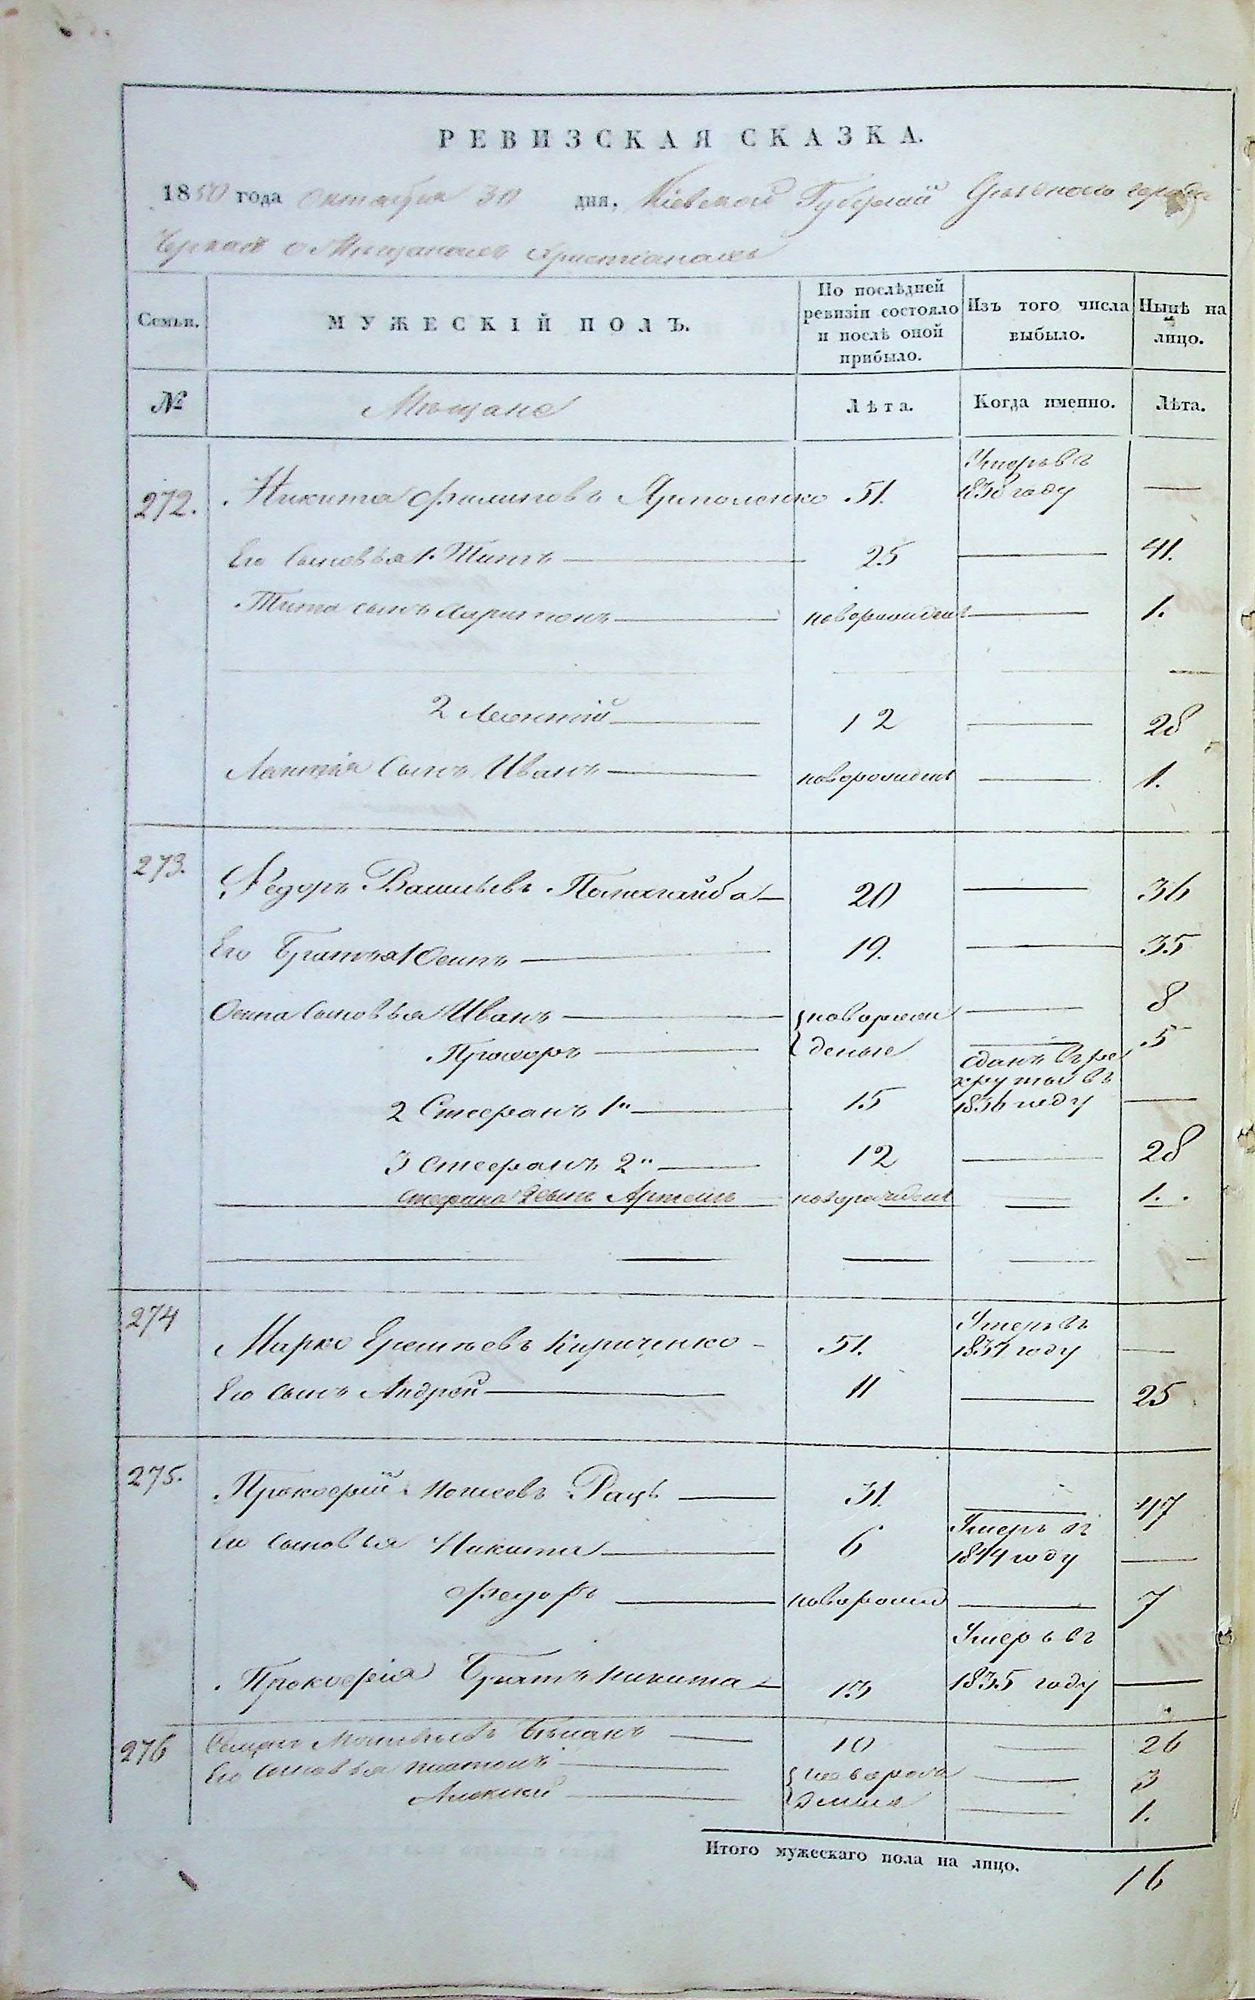 РЕВИЗСКАЯ СКАЗКА.
1850 года октября 30 дня, Кіевской Губерніи Уѣзднаго города
Черкас о Мѣщанахъ Христіанахъ
Семьи.
МУЖЕСКІЙ ПОЛЪ.
По послѣдней ревизіи состояло и послѣ оной прибыло.
Изъ того числа выбыло.
Нынѣ на лицо.
№ Мѣщане Лѣта. Когда именно. Лѣта.
272. Никита Филиповъ 51. Умеръ въ 1838 году —
Его Сыновья 1. Титъ — 25 — 41.
Тита сынъ Харитонъ — новорожденъ — 1.
2 Леонтій — 12 — 28
Леонтія Сынъ Иванъ — новорожденъ — 1.
273. Федоръ Васильевъ — 20 — 36
Его Братья 1 Осипъ — 19. — 35
Осипа Сыновья Иванъ — новорож — 8
Прохоръ — деные — 5
2 Стефанъ 1й — 15 сданъ въ рекруты въ 1836 году —
3 Стефанъ 2й — 12 — 28
Стефана 2 сынъ Артемъ — новорожденъ — 1.
274 Марко Кириченко — 51. Умеръ въ 1837 году —
Его сынъ Андрей — 11 — 25
275. Прокофій Мотеевъ Рацъ — 31. — 47
Его Сыновья Никита — 6 Умеръ въ 1844 году —
Федоръ — новорожд — 7
Прокофія Братъ Никита — 13 Умеръ въ 1835 году —
276 — 10 — 26
Его Сыновья Платонъ — новорож — 3
Алексей — деные — 1.
Итого мужескаго пола на лицо. 16